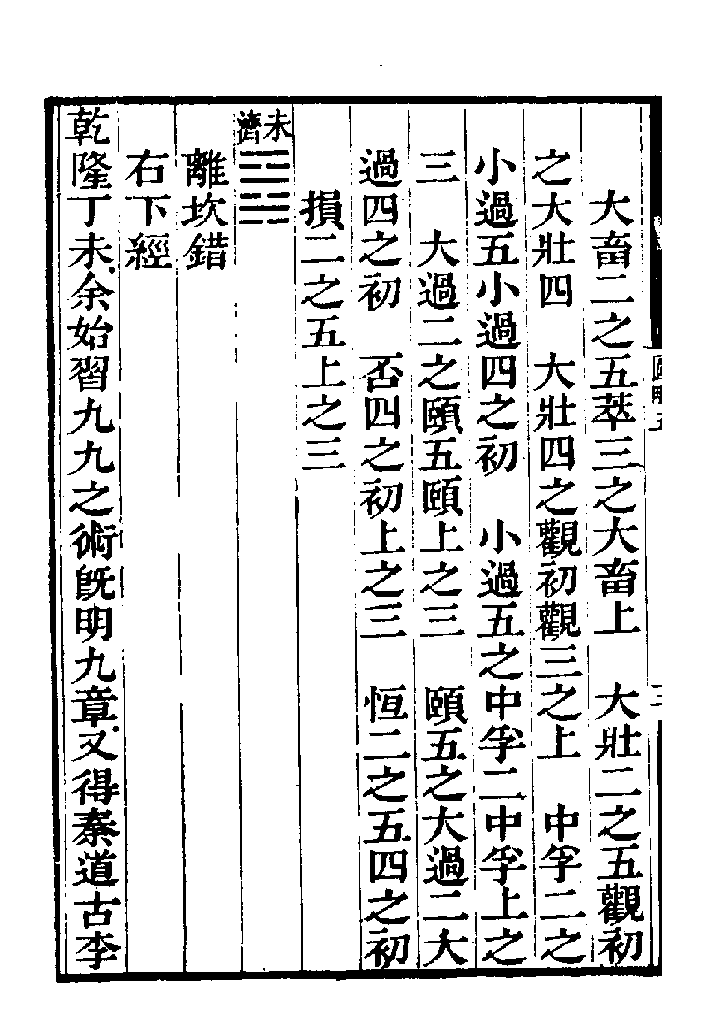 大畜二之五萃三之大畜上　大壯二之五觀初
之大壯四　大壯四之觀初觀三之上　中孚二之
小過五小過四之初　小過五之中孚二中孚上之
三　大過二之頤五頤上之三　頤五之大過二大
過四之初　否四之初上之三　恒二之五四之初
損二之五上之三
未濟
離坎錯
右下經
乾隆丁未余始習九九之術旣明九章又得秦道古李